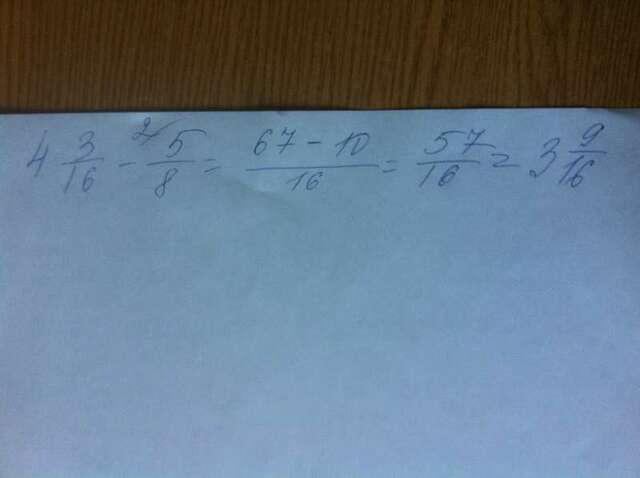 4 3/16 - 2/ 5/8 = 67 - 10/16 = 57/16 = 3 9/16